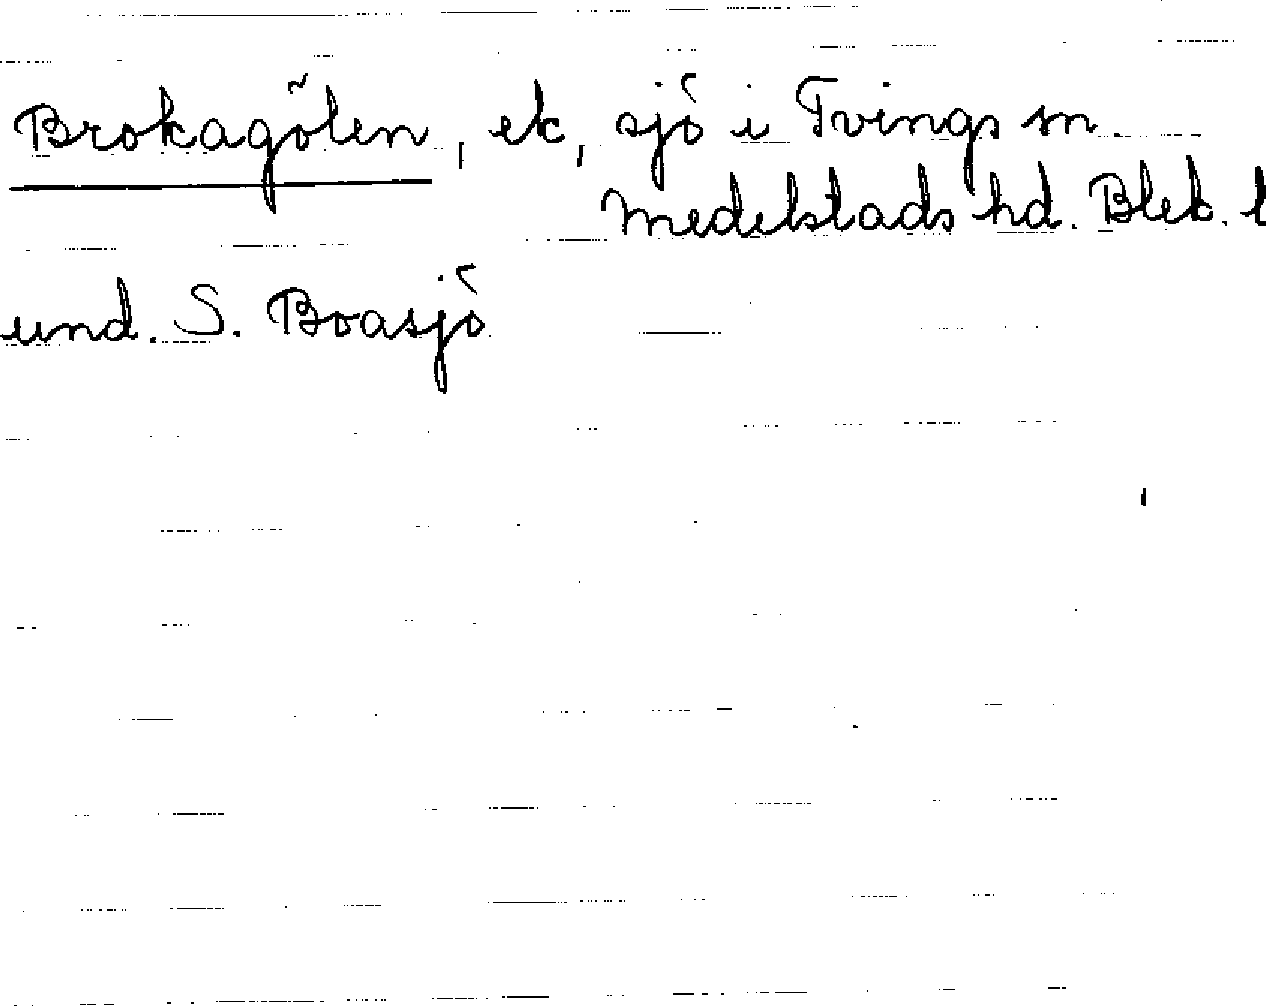 Brokagölen, ek, sjö i Tvings sn.
Medelstads hd. Blek. l
und. S. Boasjö